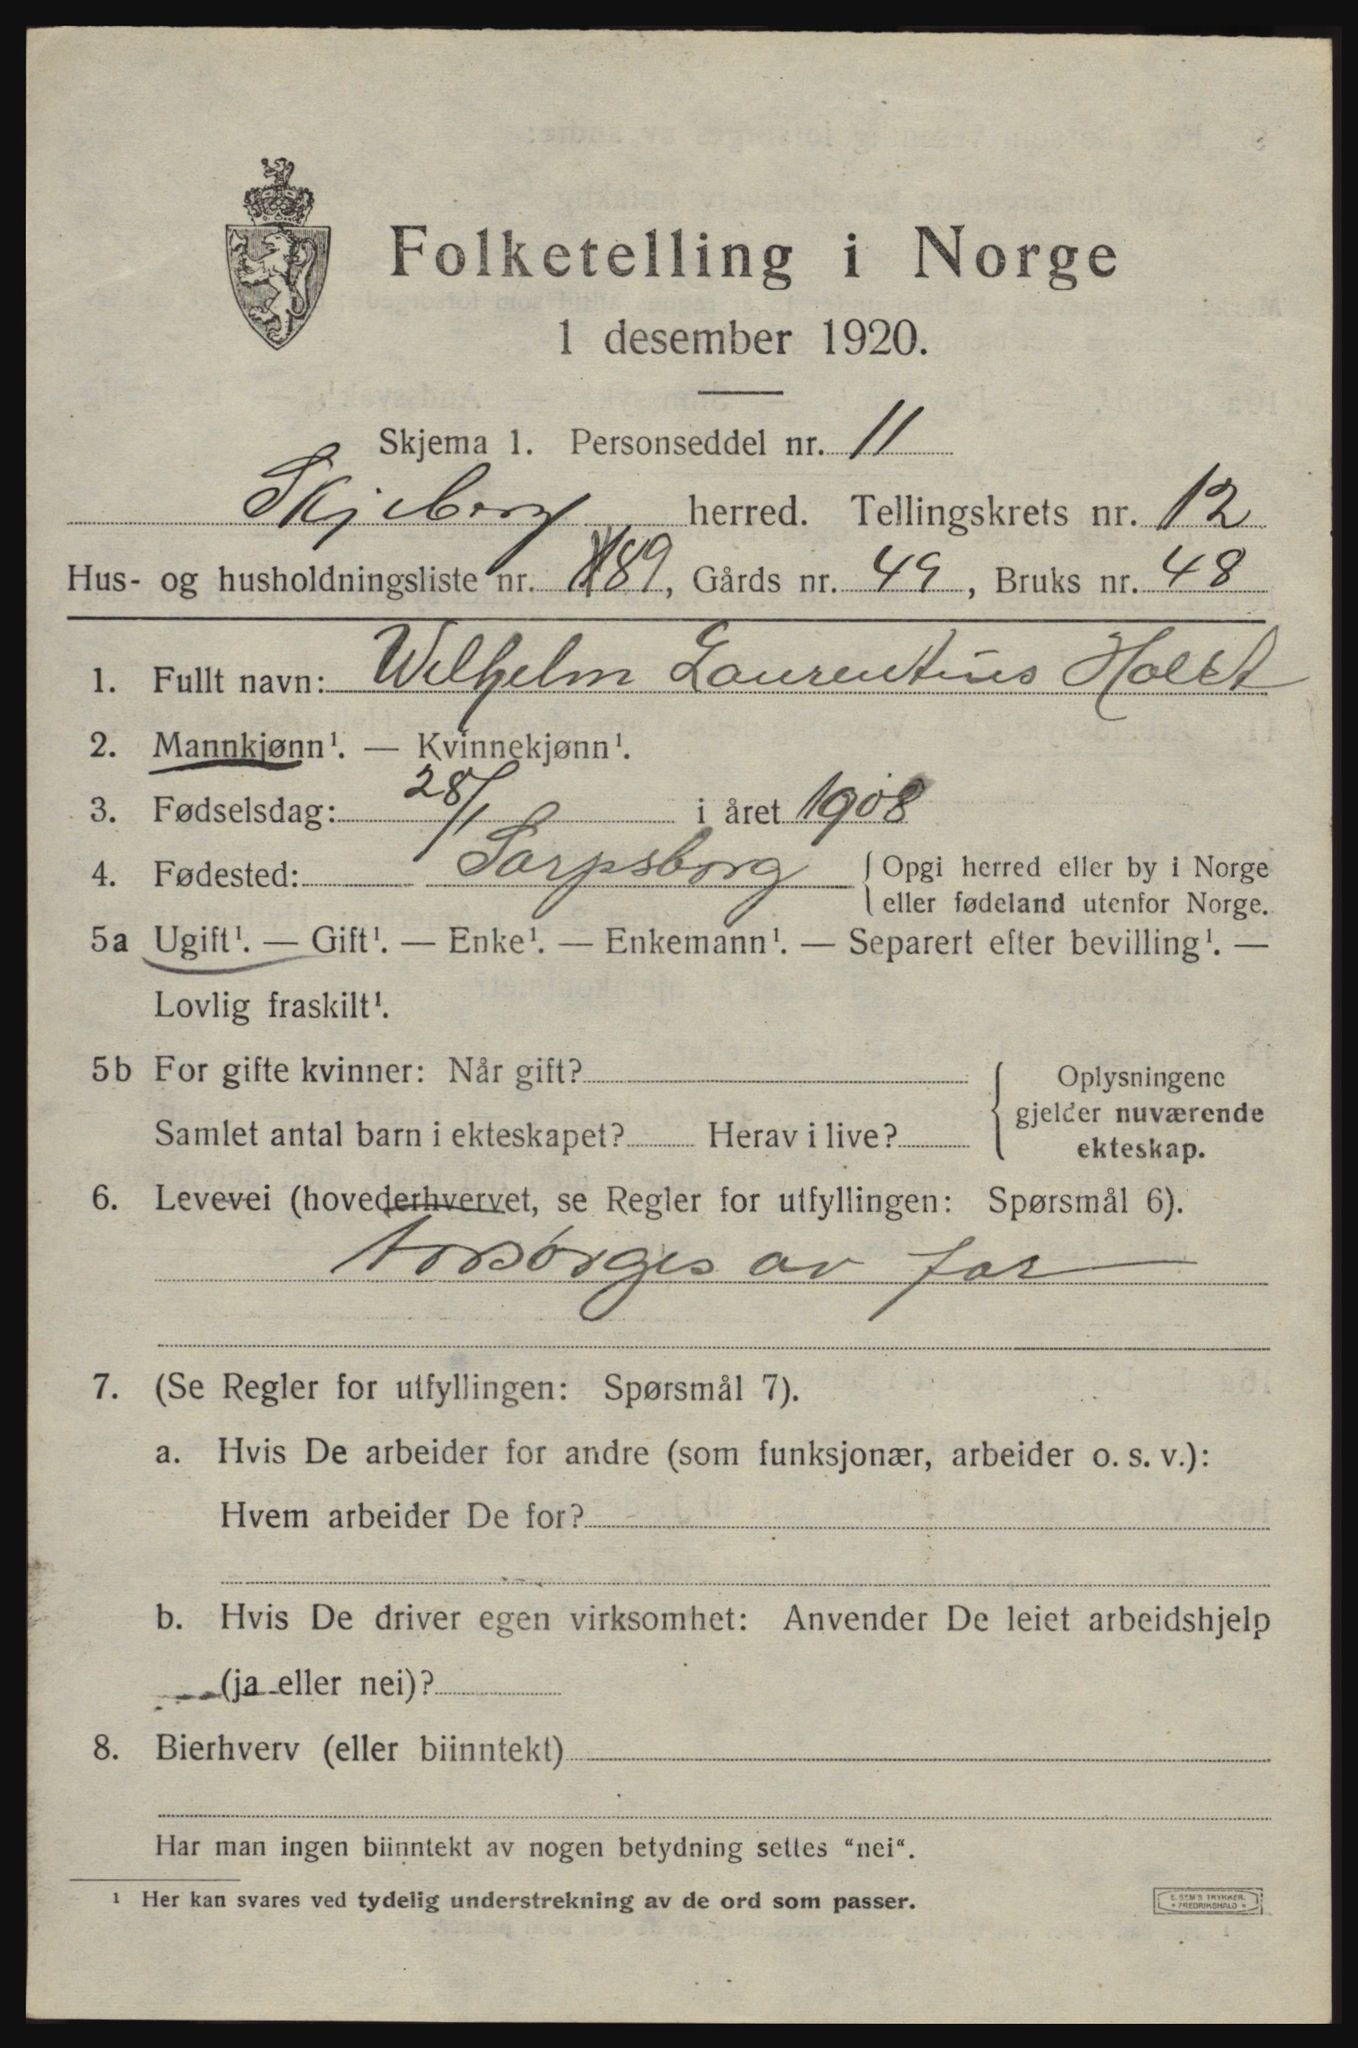 Folketelling i Norge
1 desember 1920.
Skjema 1. Personseddel nr. 11
Skjeberg herred. Tellingskrets nr. 12
Hus- og husholdningsliste nr. 189, Gårds nr. 49, Bruks nr. 48
1. Fullt navn: Wilhelm Laurentius Holst
2. Mannkjønn¹. — Kvinnekjønn¹.
3. Fødselsdag: 28/1 i året 1908
4. Fødested: Sarpsborg { Opgi herred eller by i Norge
eller fødeland utenfor Norge.
5a Ugift¹. — Gift¹. — Enke¹. — Enkemann¹. — Separert efter bevilling¹. —
Lovlig fraskilt¹.
5b For gifte kvinner: Når gift?
Samlet antal barn i ekteskapet? Herav i live?
{ Oplysningene
gjelder nuværende
ekteskap.
6. Levevei (hovederhvervet, se Regler for utfyllingen: Spørsmål 6).
forsørges av far
7. (Se Regler for utfyllingen: Spørsmål 7).
a. Hvis De arbeider for andre (som funksjonær, arbeider o. s. v.):
Hvem arbeider De for?
b. Hvis De driver egen virksomhet: Anvender De leiet arbeidshjelp
(ja eller nei)?
8. Bierhverv (eller biinntekt)
Har man ingen biinntekt av nogen betydning settes “nei“.
¹ Her kan svares ved tydelig understrekning av de ord som passer.
E. SEM'S TRYKKERI
* FREDRIKSHALD *